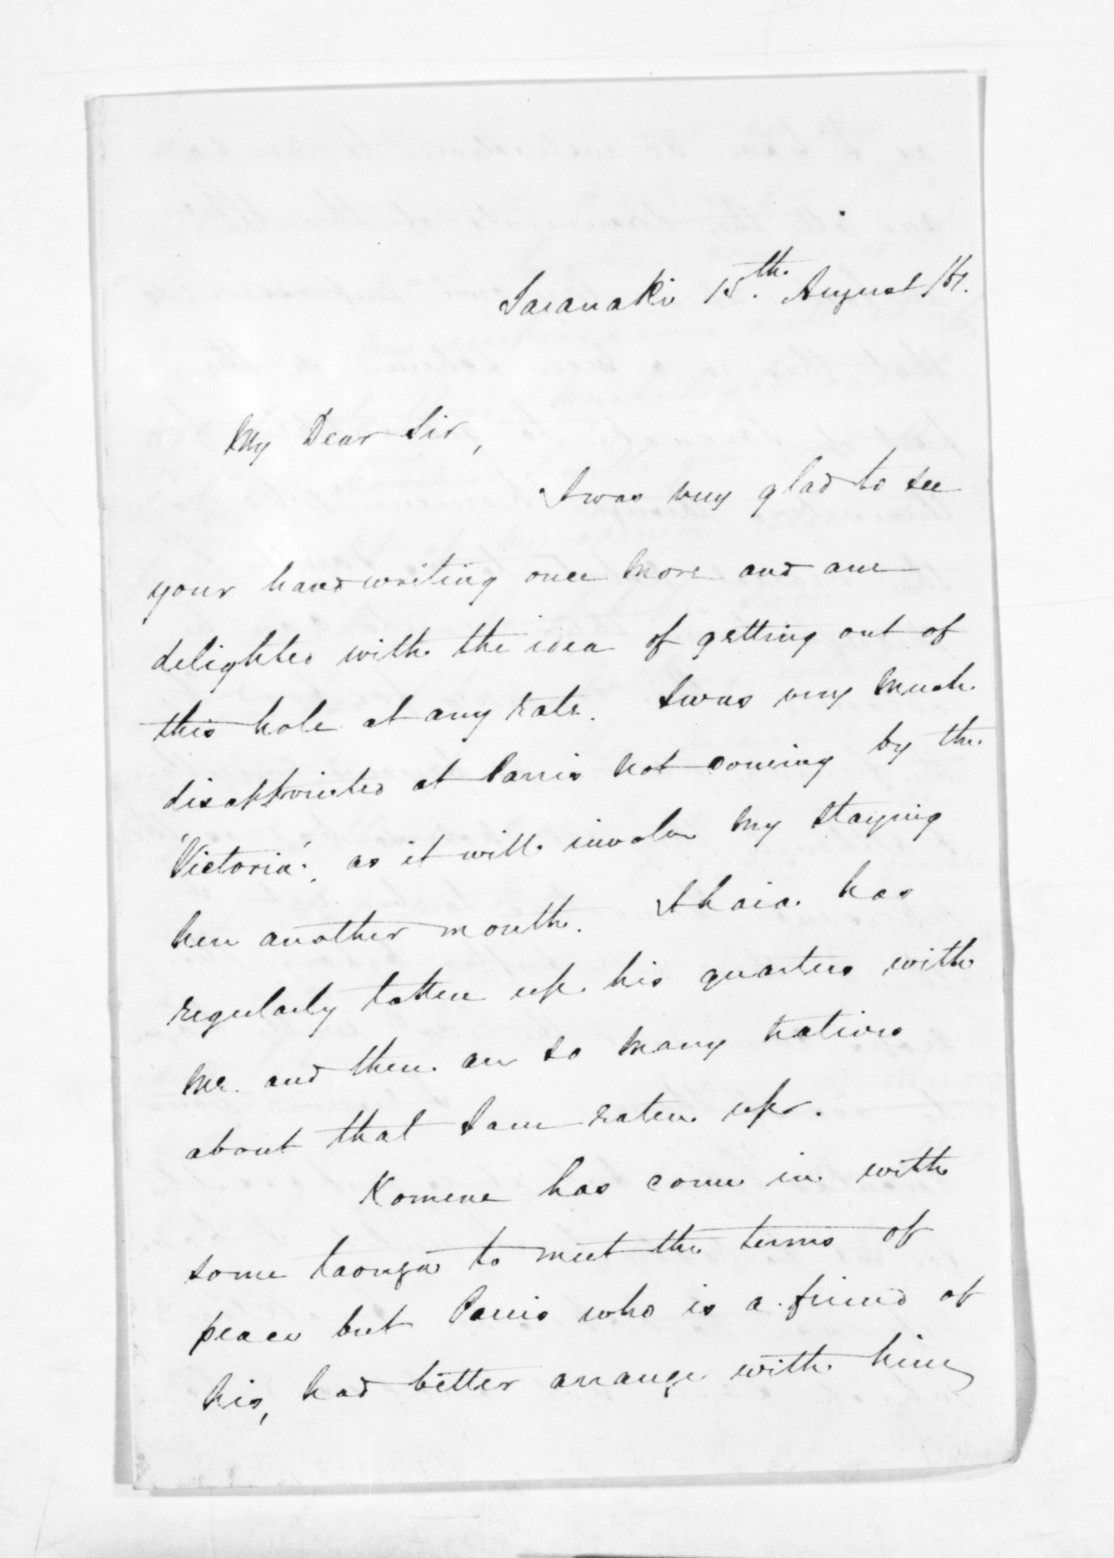 Taranaki 15th. August /61.
My Dear Sir,
I was very glad to see
your handwriting once more and am
delighted with the idea of getting out of
this hole at any rate. I was very much
disappointed at Parris not coming by the
'Victoria', as it will involve my staying
here another month. Ihaia has
regularly taken up his quarters with
me and there are so many natives
about that I am eaten up.
Komene has come in with
some taonga to meet the terms of
peace but Parris who is a friend of
his, had better arrange with him